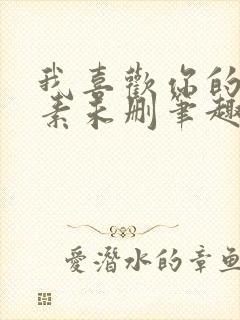 我喜歡你的
素未删筆趣
愛潛水的章魚